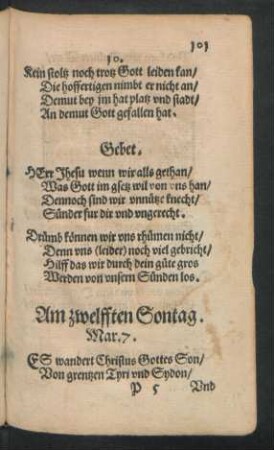 101
10.
Kein stoltz noch trotz Gott leiden kan/
Die hoffertigen nimbt er nicht an/
Demut bey jm hat platz vnd stadt/
An demut Gott gefallen hat.
Gebet.
HErr Jhesu wenn wir alls gethan/
Was Gott im gsetz wil von vns han/
Dennoch sind wir vnnütze knecht/
Sünder fur dir vnd vngerecht.
Drümb können wir vns rhümen nicht/
Denn vns (leider) noch viel gebricht/
Hilff das wir durch dein güte gros
Werden von vnsern Sünden los.
Am zwelfften Sontag.
Mar. 7.
ES wandert Christus Gottes Son/
Von grentzen Tyri vnd Sydon/
P 5 Vnd